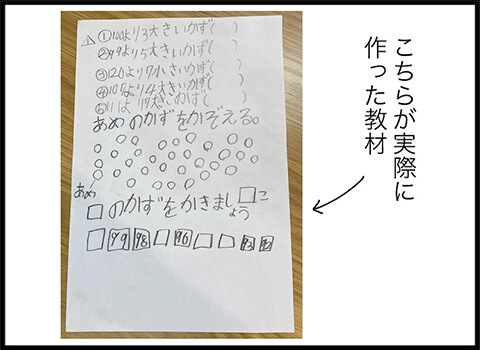 こちらが実際に
作った教材
①100より3大きいかず( )
②99より5大きいかず( )
③120より7小さいかず( )
④107より4大きいかず( )
あめのかずをかぞえる。
あめ
こ
□のかずをかきましょう
□ 99 98 □ 96 □ □ 93 92